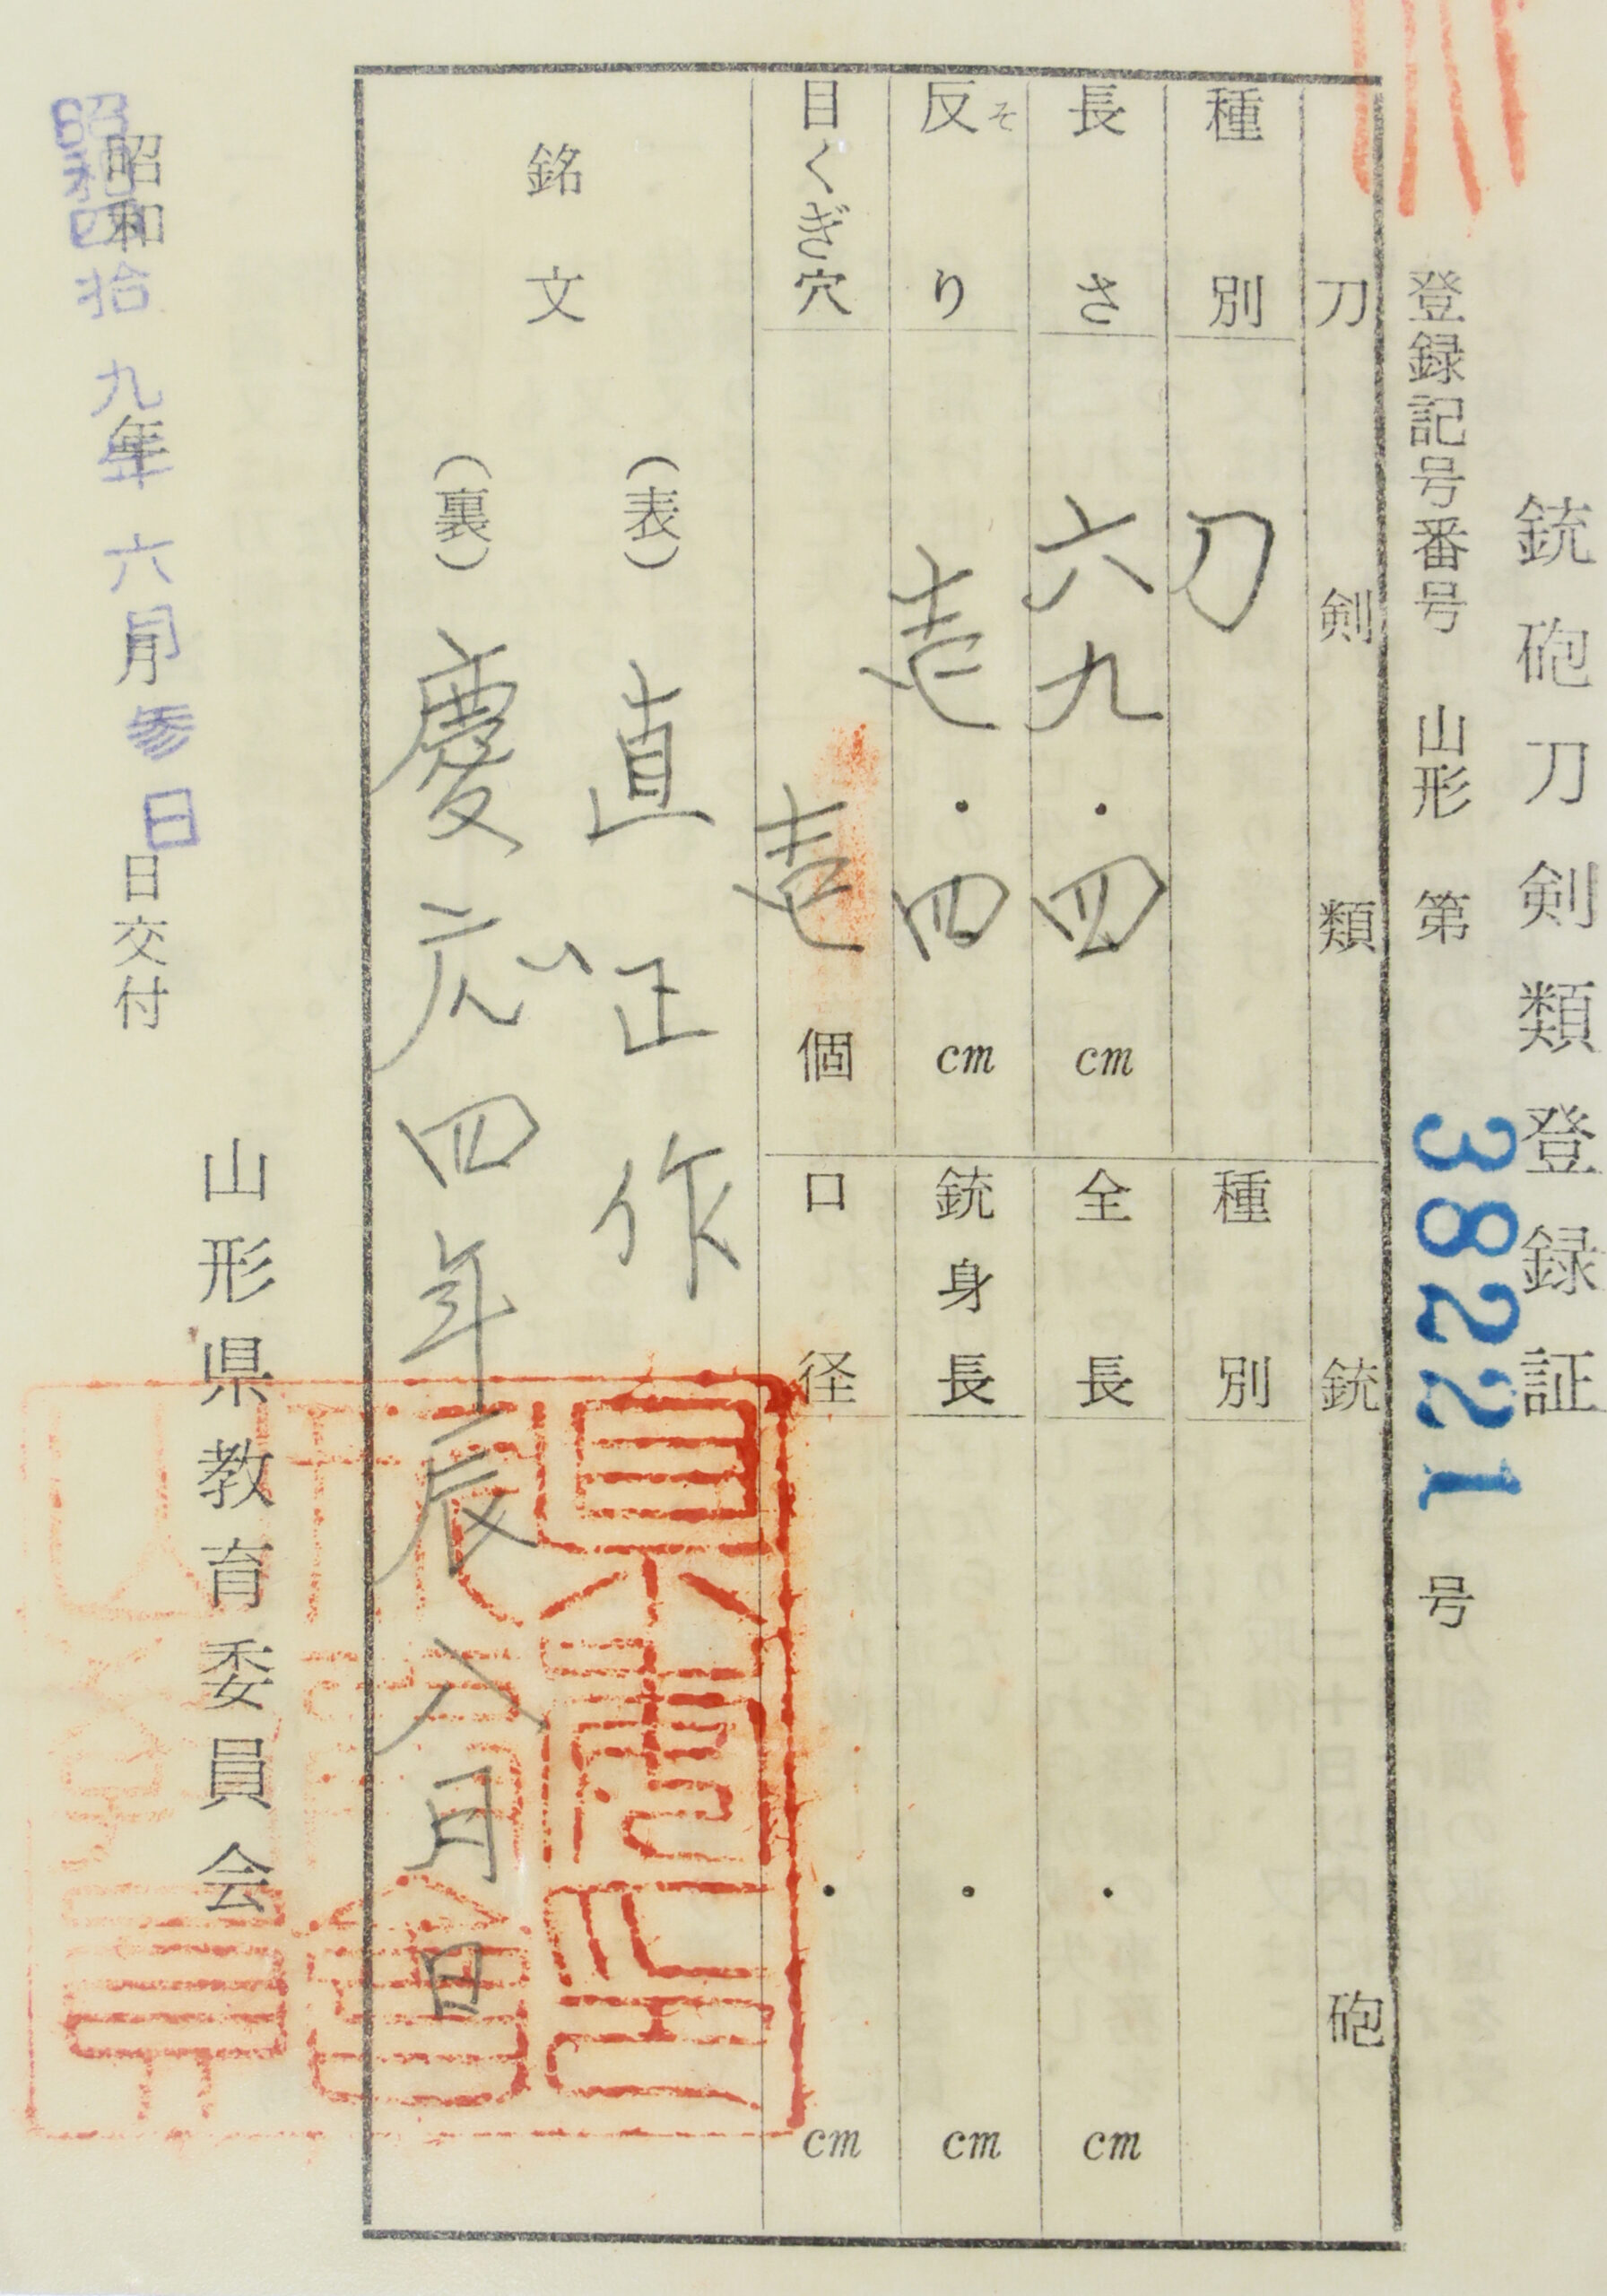 銃砲刀剣類登録証
登録記号番号 山形 第 38221 号
刀剣類
種別 刀
長さ 六九・四 cm
反り そ 壱・四 cm
目くぎ穴 壱 個
銘文
(表) 直正作
(裏) 慶応四年辰八月日
銃砲
種別
全長 ・ cm
銃身長 ・ cm
口径 ・ cm
昭和 年 月 日交付
昭和四拾九年六月参日
山形県教育委員会